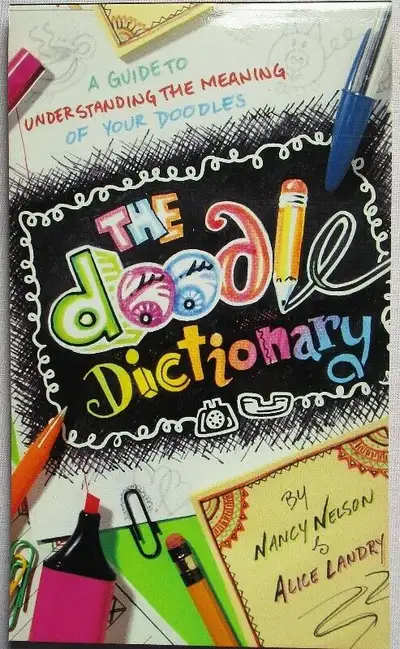 A GUIDE TO
UNDERSTANDING THE MEANING
OF YOUR DOODLES
THE
doodle
Dictionary
BY
NANCY NELSON
&
ALICE LANDRY